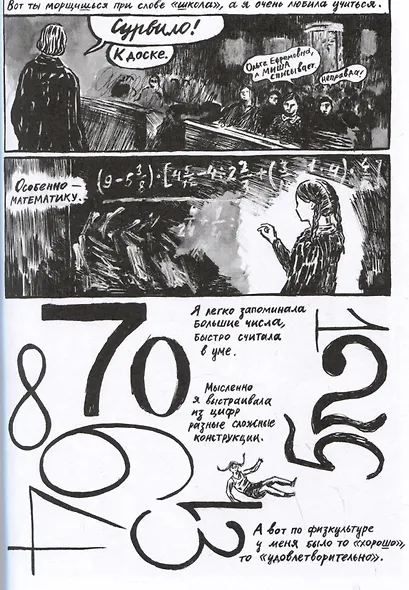 Вот ты морщишься при слове «школа», а я очень любила учиться.
Сурвило!
К доске.
Ольга Ефремовна,
а Миша
списывает.
Неправда!
Особенно —
математику.
Я легко запоминала
большие числа,
быстро считала
в уме.
Мысленно
я выстраивала
из цифр
разные сложные
конструкции.
7
0
8
9
4
1
3
1
2
5
А вот по физкультуре
у меня было то «хорошо»,
то «удовлетворительно».